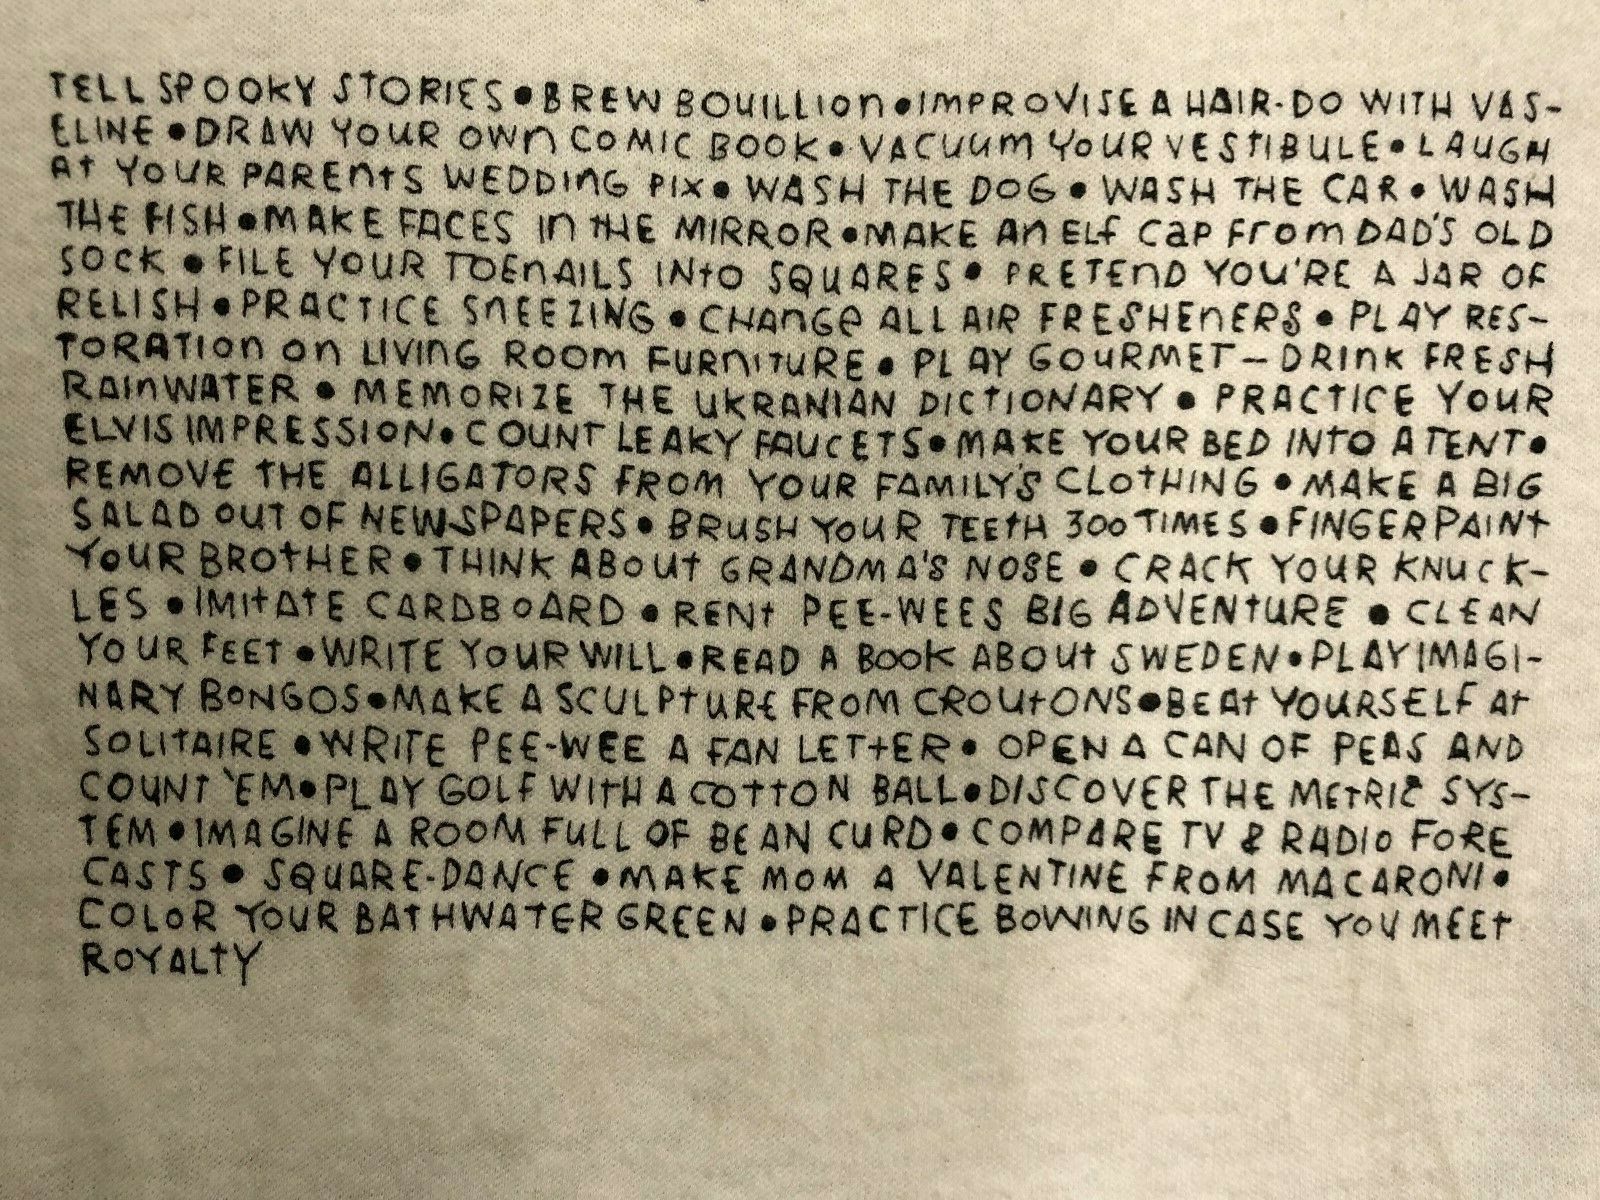 TELL SPOOKY STORIES•BREW BOUILLION•IMPROVISE A HAIR-DO WITH VAS-
ELINE•DRAW YOUR OWN COMIC BOOK•VACUUM YOUR VESTIBULE•LAUGH
AT YOUR PARENTS WEDDING PIX•WASH THE DOG•WASH THE CAR•WASH
THE FISH•MAKE FACES IN THE MIRROR•MAKE AN ELF CAP FROM DAD'S OLD
SOCK•FILE YOUR TOENAILS INTO SQUARES•PRETEND YOU'RE A JAR OF
RELISH•PRACTICE SNEEZING•CHANGE ALL AIR FRESHENERS•PLAY RES-
TORATION ON LIVING ROOM FURNITURE•PLAY GOURMET—DRINK FRESH
RAINWATER•MEMORIZE THE UKRANIAN DICTIONARY•PRACTICE YOUR
ELVIS IMPRESSION•COUNT LEAKY FAUCETS•MAKE YOUR BED INTO A TENT•
REMOVE THE ALLIGATORS FROM YOUR FAMILY'S CLOTHING•MAKE A BIG
SALAD OUT OF NEWSPAPERS•BRUSH YOUR TEETH 300 TIMES•FINGERPAINT
YOUR BROTHER•THINK ABOUT GRANDMA'S NOSE•CRACK YOUR KNUCK-
LES•IMITATE CARDBOARD•RENT PEE-WEES BIG ADVENTURE•CLEAN
YOUR FEET•WRITE YOUR WILL•READ A BOOK ABOUT SWEDEN•PLAY IMAGI-
NARY BONGOS•MAKE A SCULPTURE FROM CROUTONS•BEAT YOURSELF AT
SOLITAIRE•WRITE PEE-WEE A FAN LETTER•OPEN A CAN OF PEAS AND
COUNT 'EM•PLAY GOLF WITH A COTTON BALL•DISCOVER THE METRIC SYS-
TEM•IMAGINE A ROOM FULL OF BEAN CURD•COMPARE TV & RADIO FORE
CASTS•SQUARE-DANCE•MAKE MOM A VALENTINE FROM MACARONI•
COLOR YOUR BATHWATER GREEN•PRACTICE BOWING IN CASE YOU MEET
ROYALTY